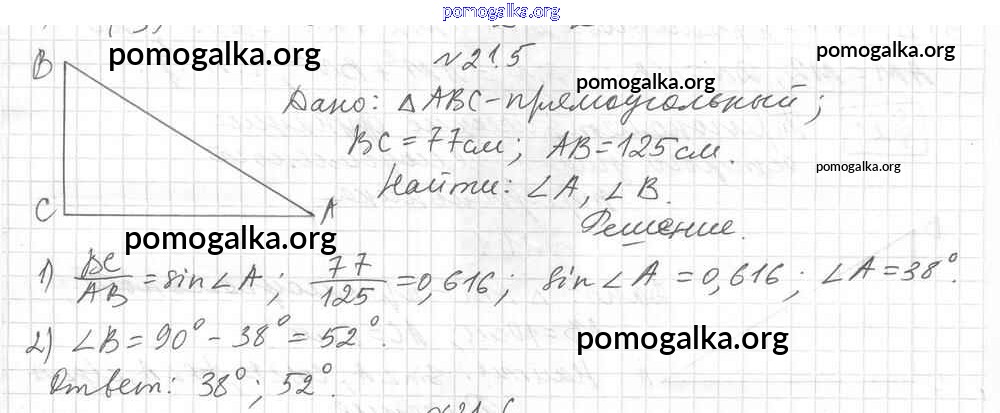 pomogalka.org
pomogalka.org
pomogalka.org
№21.5
pomogalka.org
B
Дано: △ABC - прямоугольный;
BC = 77см; AB = 125см.
pomogalka.org
Найти: ∠A, ∠B.
C
A
Решение.
pomogalka.org
1) BC/AB = sin∠A; 77/125 = 0,616; sin∠A = 0,616; ∠A = 38°.
2) ∠B = 90° - 38° = 52°.
pomogalka.org
Ответ: 38°; 52°.